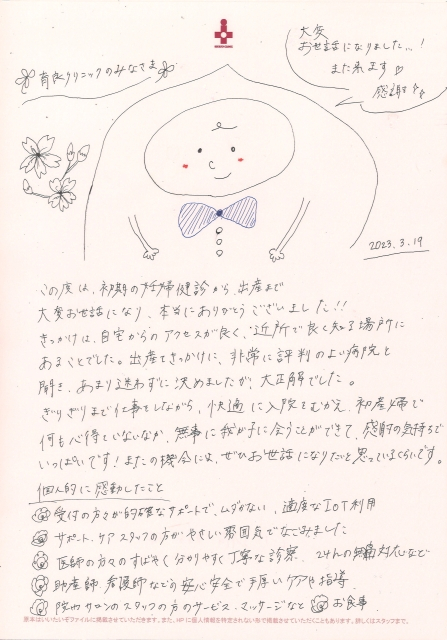 大変
お世話になりました…!
また来ます♡
感謝
育良クリニックのみなさま
2023.3.19
この度は、初期の妊婦健診から、出産まで
大変お世話になり、本当にありがとうございました!!
きっかけは、自宅からのアクセスが良く、近所で良く知る場所に
あることでした。出産をきっかけに、非常に評判のよい病院と
聞き、あまり迷わずに決めましたが、大正解でした。
ぎりぎりまで仕事をしながら、快適に入院をむかえ、初産婦で
何も心得といないなか、無事に我が子に会うことができて、感謝の気持ちで
いっぱいです!またの機会には、ぜひお世話になりたいと思っているくらいです。
個人的に感動したこと
受付の方々が的確なサポートで、ムダがない、適度なIoT利用
サポート、ケアスタッフの方がやさしい雰囲気でなごみました
医師の方々のすばやく分かりやすく丁寧な診察、24hの無痛対応など
助産師、看護師などの安心安全で手厚いケアや指導
院内サロンのスタッフの方のサービス・マッサージなど お食事
原本はいいたいぞファイルに掲載させていただきます。また、HPに個人情報を特定されない形で掲載させていただくこともあります。詳しくはスタッフまで。